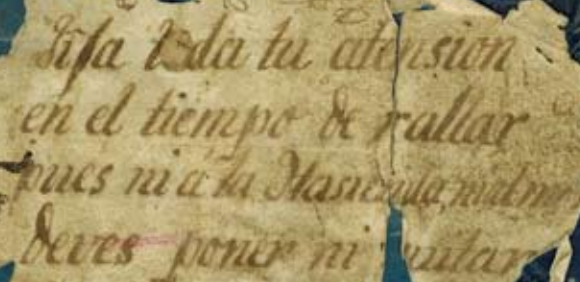 Fija toda tu atension
en el tiempo de rallar
pues ni a la Hasienda
deves poner ni quitar